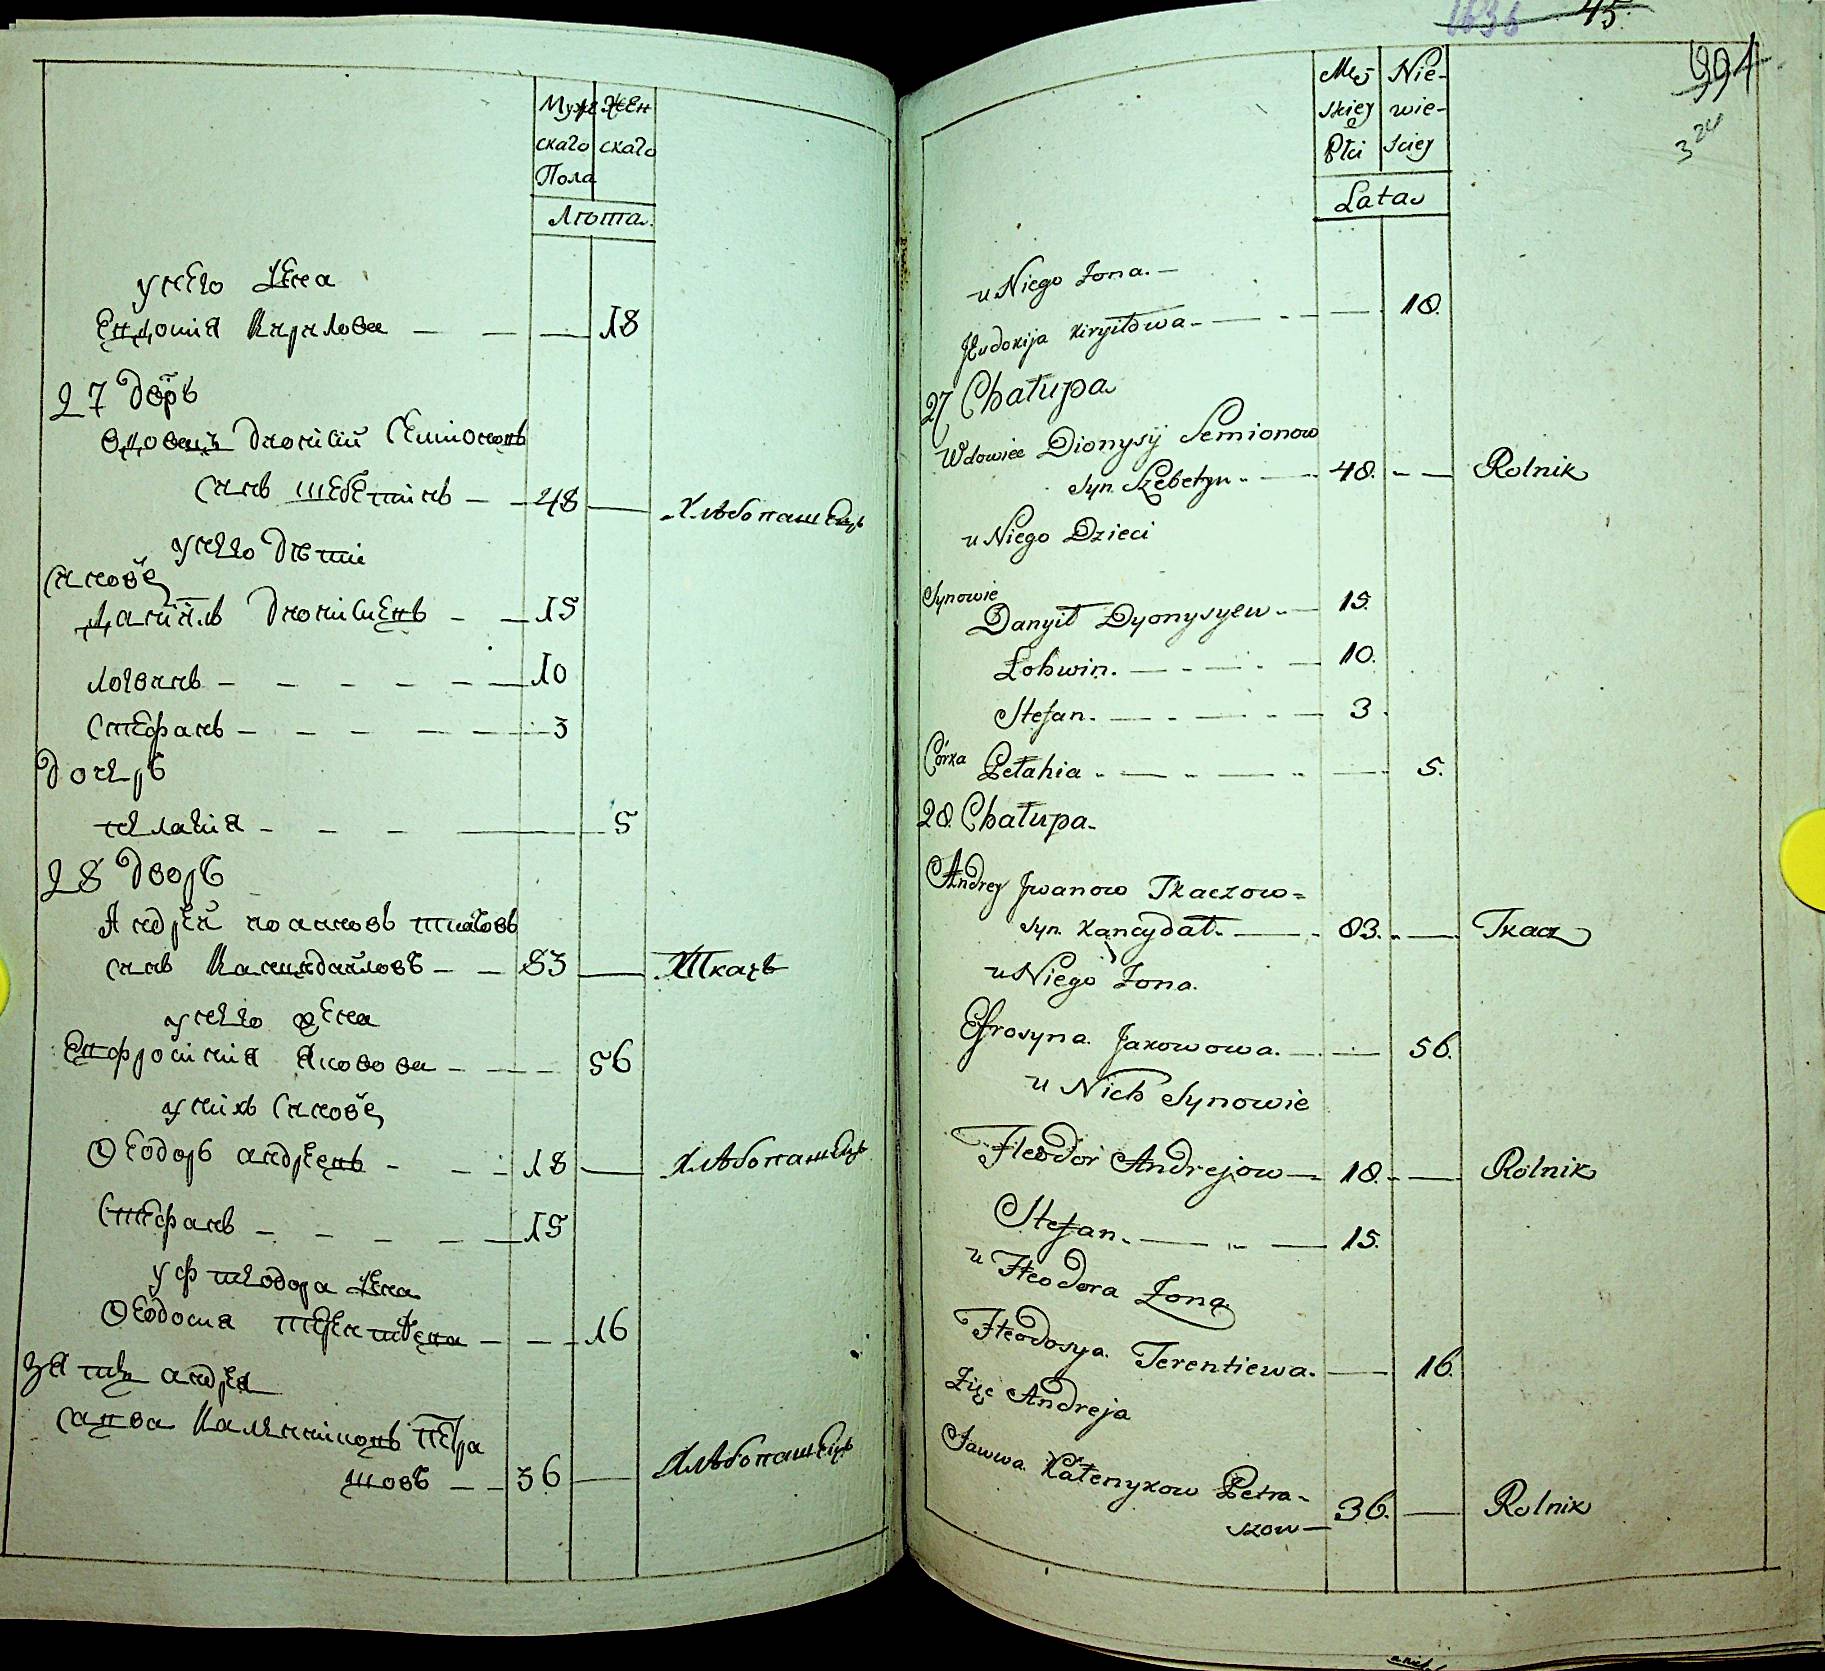 Муже Жен
скаго скаго
Пола
Люта
у него Жена
Евдокия Кирилова — — — 18
27 Дворъ
вдовецъ Дионисий Семионовъ
синъ шебетинъ — — 48 — Хлѣбопашецъ
у него Дѣти
Синовѣ
Даниилъ Дионисиевъ - — 15
логвинъ — — — — — — 10
Стефанъ — — — — — — 3
Дочеръ
пелагия — — — — 5
28 Дворъ
Андрей иоанновъ ткачовъ
синъ — — 83 — Ткачъ
у него жена
Евфросиния Яковова — — — 56
у нихъ Синовѣ
Ѳеодоръ андреевъ - — - 18 — Хлѣбопашецъ
Стефанъ — — — — — 15
у Фтеодора Жена
Ѳеодосия терентиева — — — 16
Зять андрея
савва Калениковъ петра
шовъ — — 36 — Хлѣбопашецъ
1636 45.
391
324
Męz Nie-
skiey wie-
Płci sciey
Lata
u Niego Żona. —
Jeudokija Kiryiłowa — — 18.
27 Chałupa
Wdowiec Dionysij Semionow
syn Szebetyn — 48. — — Rolnik
u Niego Dzieci
Synowie
Danyił Dyonysyew — 15.
Lohwin. — — — 10.
Stefan. — — — 3.
Córka Pełahia — — — — 5.
28. Chałupa
Andrey Jwanow Tkaczow=
syn Kancydał. — 83. — Tkacz
u Niego Żona.
Efrosyna Jakowowa. — — 56.
u Nich Synowie
Fteodor Andrejow — 18. — Rolnik
Stefan. — — — 15.
u Fteodora Żona
Fteodosya Terentiewa. — 16.
Zięć Andreja
Sawwa Kałenykow Petra-
szow — 36. — Rolnik